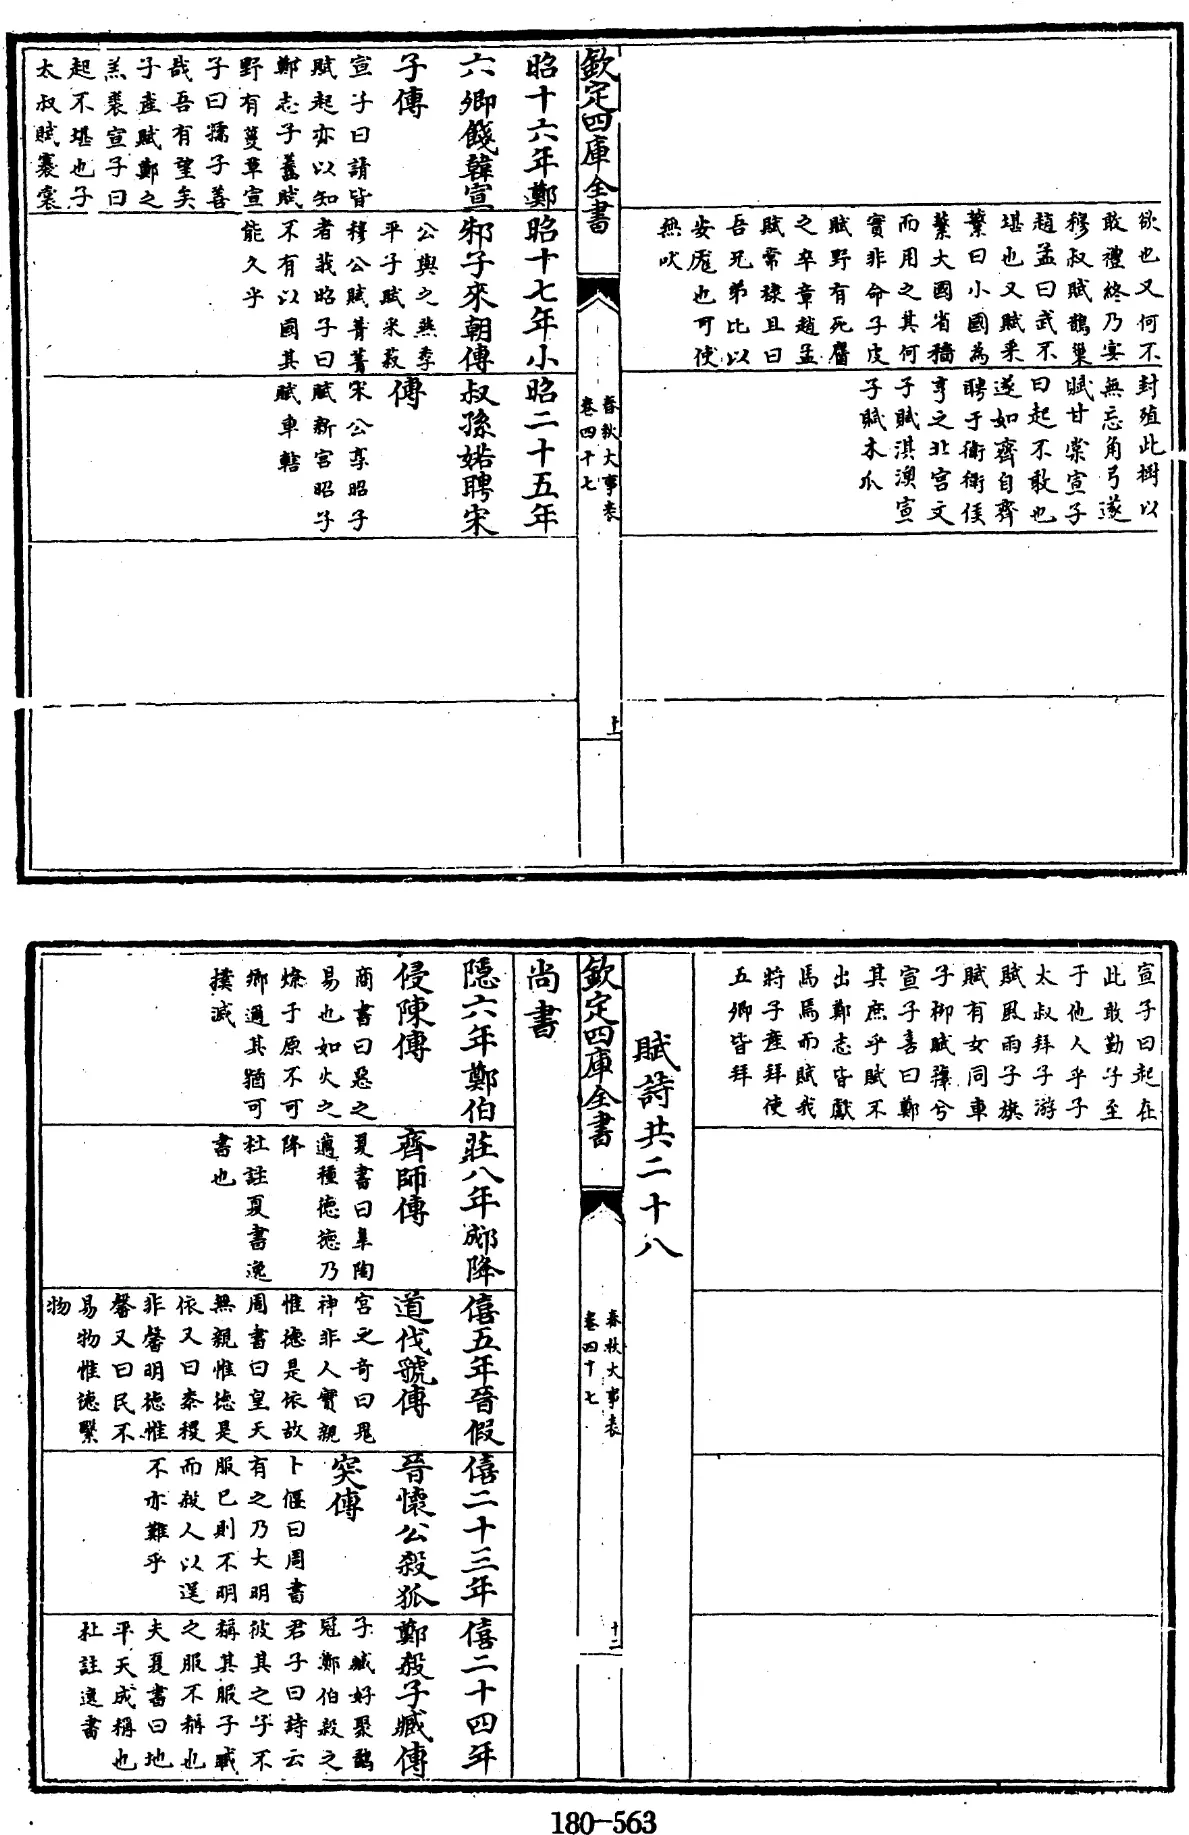 欲也又何不
敢禮終乃宴
穆叔賦鵲巢
趙孟曰武不
堪也又賦采
蘩曰小國為
蘩大國省穡
而用之其何
實非命子皮
賦野有死麕
之卒章趙孟
賦常棣且曰
吾兄弟比以
安尨也可使
無吠
封殖此樹以
無忘角弓遂
賦甘棠宣子
曰起不敢也
遂如齊自齊
聘于衛衛侯
享之北宮文
子賦淇澳宣
子賦木瓜
欽定四庫全書
春秋大事表
卷四十七
十一
昭十六年鄭
六卿餞韓宣
子傳
宣子曰請皆
賦起亦以知
鄭志子齹賦
野有蔓草宣
子曰孺子善
哉吾有望矣
子產賦鄭之
羔裘宣子曰
起不堪也子
太叔賦褰裳
昭十七年小
邾子來朝傳
公與之燕季
平子賦采菽
穆公賦菁菁
者莪昭子曰
不有以國其
能久乎
昭二十五年
叔孫婼聘宋
傳
宋公享昭子
賦新宮昭子
賦車轄
宣子曰起在
此敢勤子至
于他人乎子
太叔拜子游
賦風雨子旗
賦有女同車
子柳賦蘀兮
宣子喜曰鄭
其庶乎賦不
出鄭志皆獻
馬焉而賦我
將子產拜使
五卿皆拜
賦詩共二十八
欽定四庫全書
春秋大事表
卷四十七
十二
尚書
隱六年鄭伯
侵陳傳
商書曰惡之
易也如火之
燎于原不可
鄉邇其猶可
撲滅
莊八年郕降
齊師傳
夏書曰臯陶
邁種德德乃
降
杜註夏書逸
書也
僖五年晉假
道伐虢傳
宮之奇曰鬼
神非人實親
惟德是依故
周書曰皇天
無親惟德是
依又曰黍稷
非馨明德惟
馨又曰民不
易物惟德繄
物
僖二十三年
晉懷公殺狐
突傳
卜偃曰周書
有之乃大明
服已則不明
而殺人以逞
不亦難乎
僖二十四年
鄭殺子臧傳
子臧好聚鷸
冠鄭伯殺之
君子曰詩云
彼其之子不
稱其服子臧
之服不稱也
夫夏書曰地
平天成稱也
杜註逸書
180-563